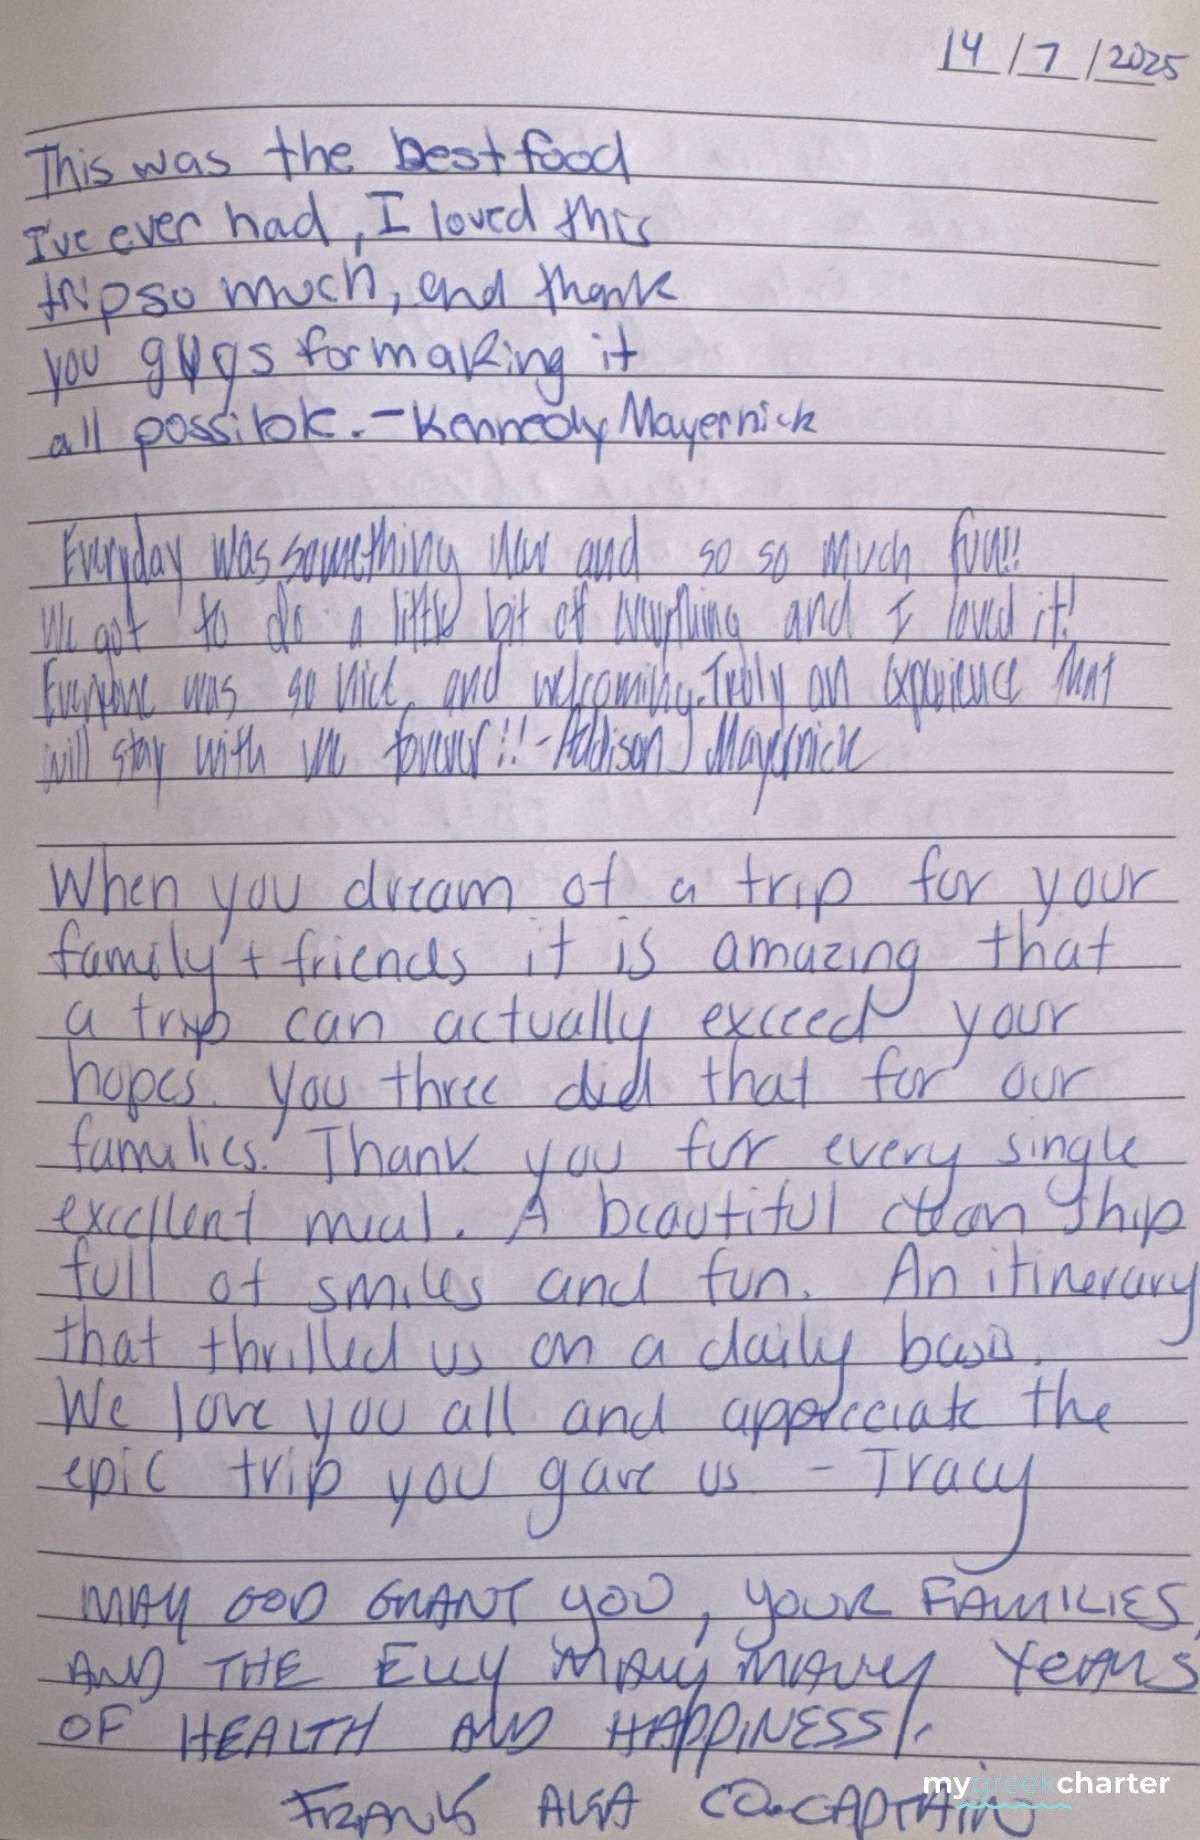 14/7/2025
This was the best food
I've ever had, I loved this
trip so much, and thank
you guys for making it
all possible. - Kennedy Mayernick
Everyday was something new and so so much fun!!
We got to do a little bit of everything and I loved it!
Everyone was so nice, and welcoming. Truly an experience that
will stay with me forever!! - Addison Mayernick
When you dream of a trip for your
family + friends it is amazing that
a trip can actually exceed your
hopes. You three did that for our
families. Thank you for every single
excellent meal. A beautiful clean ship
full of smiles and fun. An itinerary
that thrilled us on a daily basis.
We love you all and appreciate the
epic trip you gave us - Tracy
MAY GOD GRANT YOU, YOUR FAMILIES,
AND THE ELLY MANY MANY YEARS
OF HEALTH AND HAPPINESS!
FRANK AKA CO-CAPTAIN
mygreekcharter